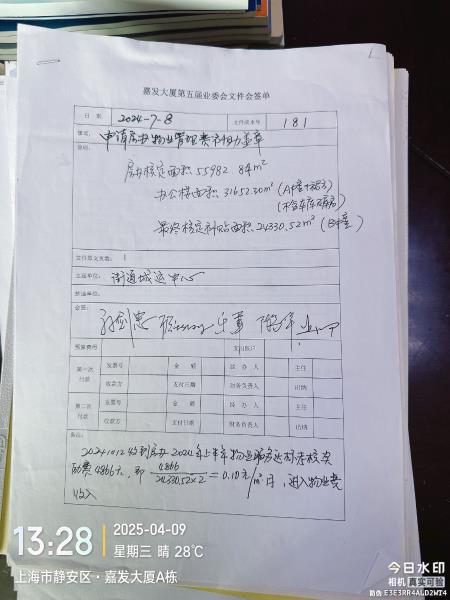 嘉发大厦第五届业委会文件会签单
日期 2024-7-8 文件流水号 181
事项: 申请房办物业管理费补贴盖章
说明:
房办核定面积 55982.84m²
办公楼面积 31652.30m² (A座+裙房)
(不含车库
最终核定补贴面积 24330.52m² (B座)
文件原文页数: 1
主送单位: 街道城运中心
抄送单位:
会签:
预算费用 支出账户
第一次付款 发票号 金额 经办人 主任
收款方 支付日期 财务负责人 出纳
第二次付款 发票号 金额 经办人 主任
收款方 支付日期 财务负责人 出纳
备注:
20241012收到房办2024年上半年物业服务达标考核奖
励费4866元, 即 4866/24330.52×2 = 0.10元/m²·月, 进入物业费
收入
13:28 2025-04-09
星期三 晴 28℃
上海市静安区·嘉发大厦A栋
今日水印
相机 真实可验
防伪 E3E3RR4ALD2WI4